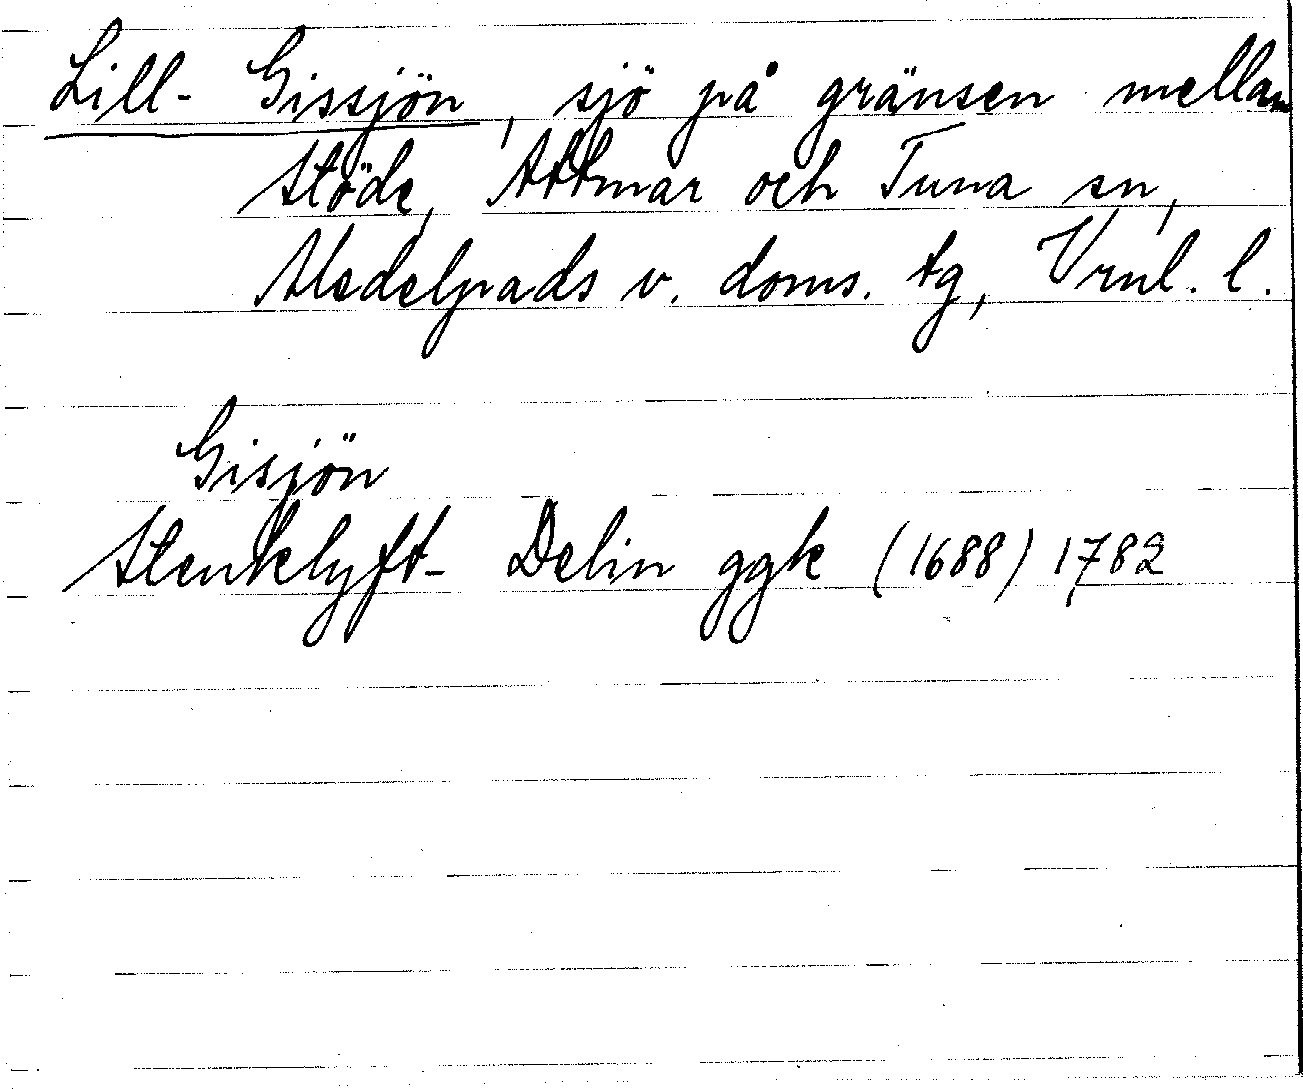 Lill- Gissjön, sjö på gränsen mellan
Stöde, Attmar och Tuna sn,
Medelpads v. doms. tg, Vrnl. l.
Gisjön
Stenklyft- Delin ggk (1688) 1782